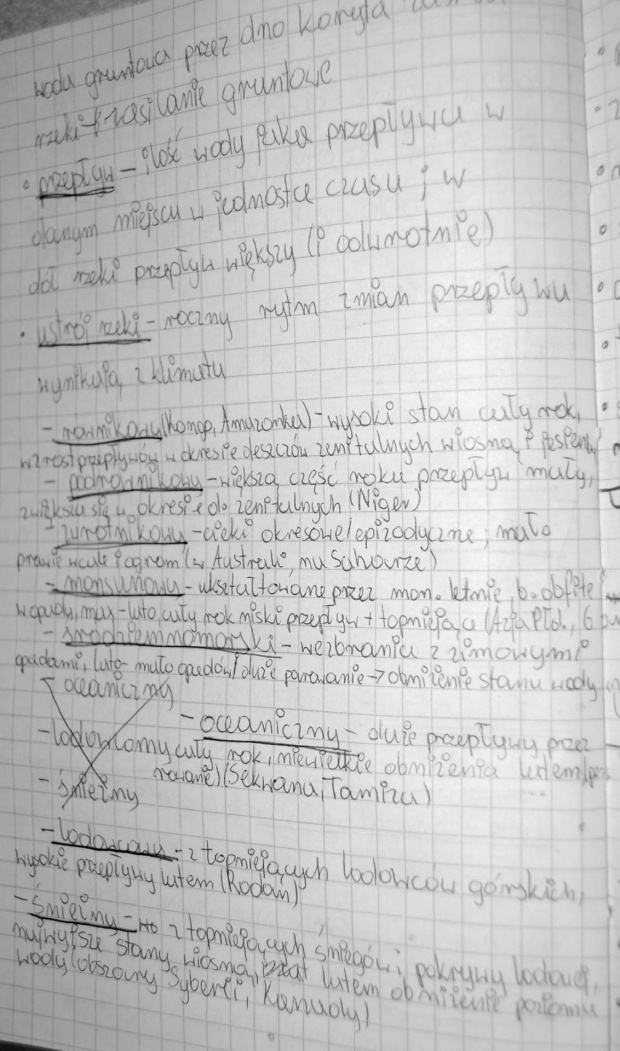 woda gruntowa przez dno koryta
rzeki → zasilanie gruntowe
• przepływ – ilość wody jaka przepływa w
danym miejscu w jednostce czasu ; w
dół rzeki przepływ większy (i odwrotnie)
• ustrój rzeki – roczny rytm zmian przepływu
wynikają z klimatu
- równikowy (Kongo, Amazonka) – wysoki stan cały rok,
wzrost przepływów w okresie deszczów zenitalnych wiosną i jesienią
- podrównikowy – większą część roku przepływ mały,
zwiększa się w okresie d. zenitalnych (Niger)
- zwrotnikowy – cieki okresowe/epizodyczne ; mało
prawie wcale (w Australi, na Saharze)
- monsunowy – ukształtowane przez mon. letnie, b. obfite
w opady, max – lato, cały rok niski przepływ + topniejące (Azja Płd.,
- śródziemnomorski – wezbrania z zimowymi
opadami, lato – mało opadów/duże parowanie → obniżenie stanu wody
- oceaniczny
- oceaniczny – duże przepływy przez
- lodowcowy cały rok, niewielkie obniżenia latem (par
- śnieżny rowanie) (Sekwana, Tamiza)
- lodowcowy – z topniejących lodowców górskich,
wysokie przepływy latem (Rodan)
- śnieżny – z topniejących śniegów i pokrywy lodowej,
najwyższe stany wiosną, latem obniżenie poziomu
wody (obszary Syberii, Kanady)